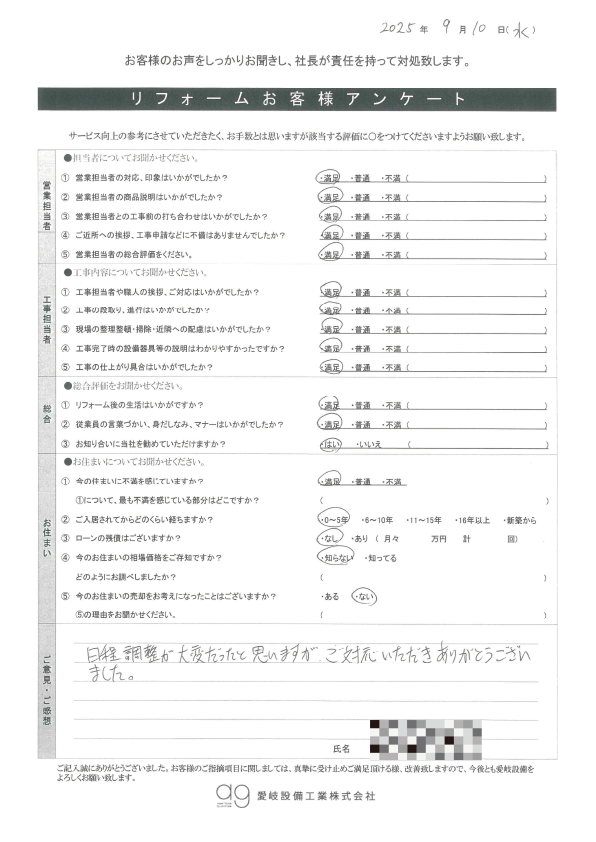 2025年 9月10日(水)
お客様のお声をしっかりお聞きし、社長が責任を持って対処致します。
リフォームお客様アンケート
サービス向上の参考にさせていただきたく、お手数とは思いますが該当する評価に○をつけてくださいますようお願い致します。
営業担当者
●担当者についてお聞かせください。
① 営業担当者の対応、印象はいかがでしたか? ・満足 ・普通 ・不満 ( )
② 営業担当者の商品説明はいかがでしたか? ・満足 ・普通 ・不満 ( )
③ 営業担当者との工事前の打ち合わせはいかがでしたか? ・満足 ・普通 ・不満 ( )
④ ご近所への挨拶、工事申請などに不備はありませんでしたか? ・満足 ・普通 ・不満 ( )
⑤ 営業担当者の総合評価をください。 ・満足 ・普通 ・不満 ( )
工事担当者
●工事内容についてお聞かせください。
① 工事担当者や職人の挨拶、ご対応はいかがでしたか? ・満足 ・普通 ・不満 ( )
② 工事の段取り、進行はいかがでしたか? ・満足 ・普通 ・不満 ( )
③ 現場の整理整頓・掃除・近隣への配慮はいかがでしたか? ・満足 ・普通 ・不満 ( )
④ 工事完了時の設備器具等の説明はわかりやすかったですか? ・満足 ・普通 ・不満 ( )
⑤ 工事の仕上がり具合はいかがでしたか? ・満足 ・普通 ・不満 ( )
総合
●総合評価をお聞かせください。
① リフォーム後の生活はいかがですか? ・満足 ・普通 ・不満 ( )
② 従業員の言葉づかい、身だしなみ、マナーはいかがでしたか? ・満足 ・普通 ・不満 ( )
③ お知り合いに当社を勧めていただけますか? ・はい ・いいえ ( )
お住まい
●お住まいについてお聞かせください。
① 今の住まいに不満を感じていますか? ・満足 ・普通 ・不満
①について、最も不満を感じている部分はどこですか? ( )
② ご入居されてからどのくらい経ちますか? ・0～5年 ・6～10年 ・11～15年 ・16年以上 ・新築から
③ ローンの残債はございますか? ・なし ・あり ( 月々 万円 計 回)
④ 今のお住まいの相場価格をご存知ですか? ・知らない ・知ってる
どのようにお調べしましたか? ( )
⑤ 今のお住まいの売却をお考えになったことはございますか? ・ある ・ない
⑤の理由をお聞かせください。 ( )
ご意見・ご感想
日程調整が大変だったと思いますが、ご対応いただきありがとうござい
ました。
氏名
ご記入誠にありがとうございました。お客様のご指摘項目に関しましては、真摯に受け止めご満足頂ける様、改善致しますので、今後とも愛岐設備を
よろしくお願い致します。
ag 愛岐設備工業株式会社